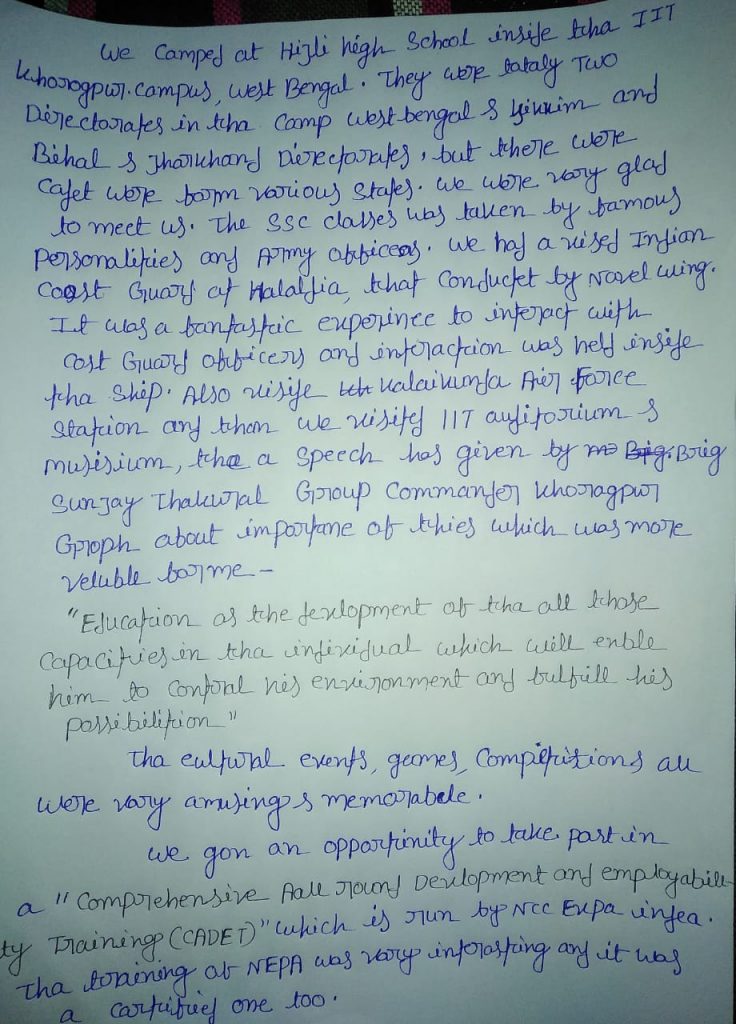 We Camped at Hijli high School inside tha IIT
Khoragpur campus, West Bengal. They were totaly Two
Directorates in tha Camp West bengal & Sikkim and
Bihal & Jharkhand Directorates, but there were
Cadet were form various States. We were vary glad
to meet us. The SSC classes was taken by famous
Personalities and Army officers. We had a vised Indian
Coast Guard at Halaldia, that Conductet by Navel wing.
It was a fantastic experince to interact with
cost Guard officers and interaction was held inside
tha Ship. Also visite Kalaikunda Air force
Station and than we visited IIT auditorium &
musisium, tha a Speech has given by Brig
Sunjay Thakural Group Commander Khoragpur
Groph about importane of thies which was more
veluble for me -
"Education as the devlopment of tha all those
Capacities in tha individual which will enble
him to Contral his environment and fulfill his
possibilition"
Tha cultural events, geomes, Compititions all
were vary amusing & memorabele.
We gon an opportinity to take part in
a "Comprehensive Aall round Devlopment and employabili-
ty Training (CADET)" which is run by NCC Ekpa indea.
Tha training at NEPA was vary intrasting and it was
a cartifued one too.